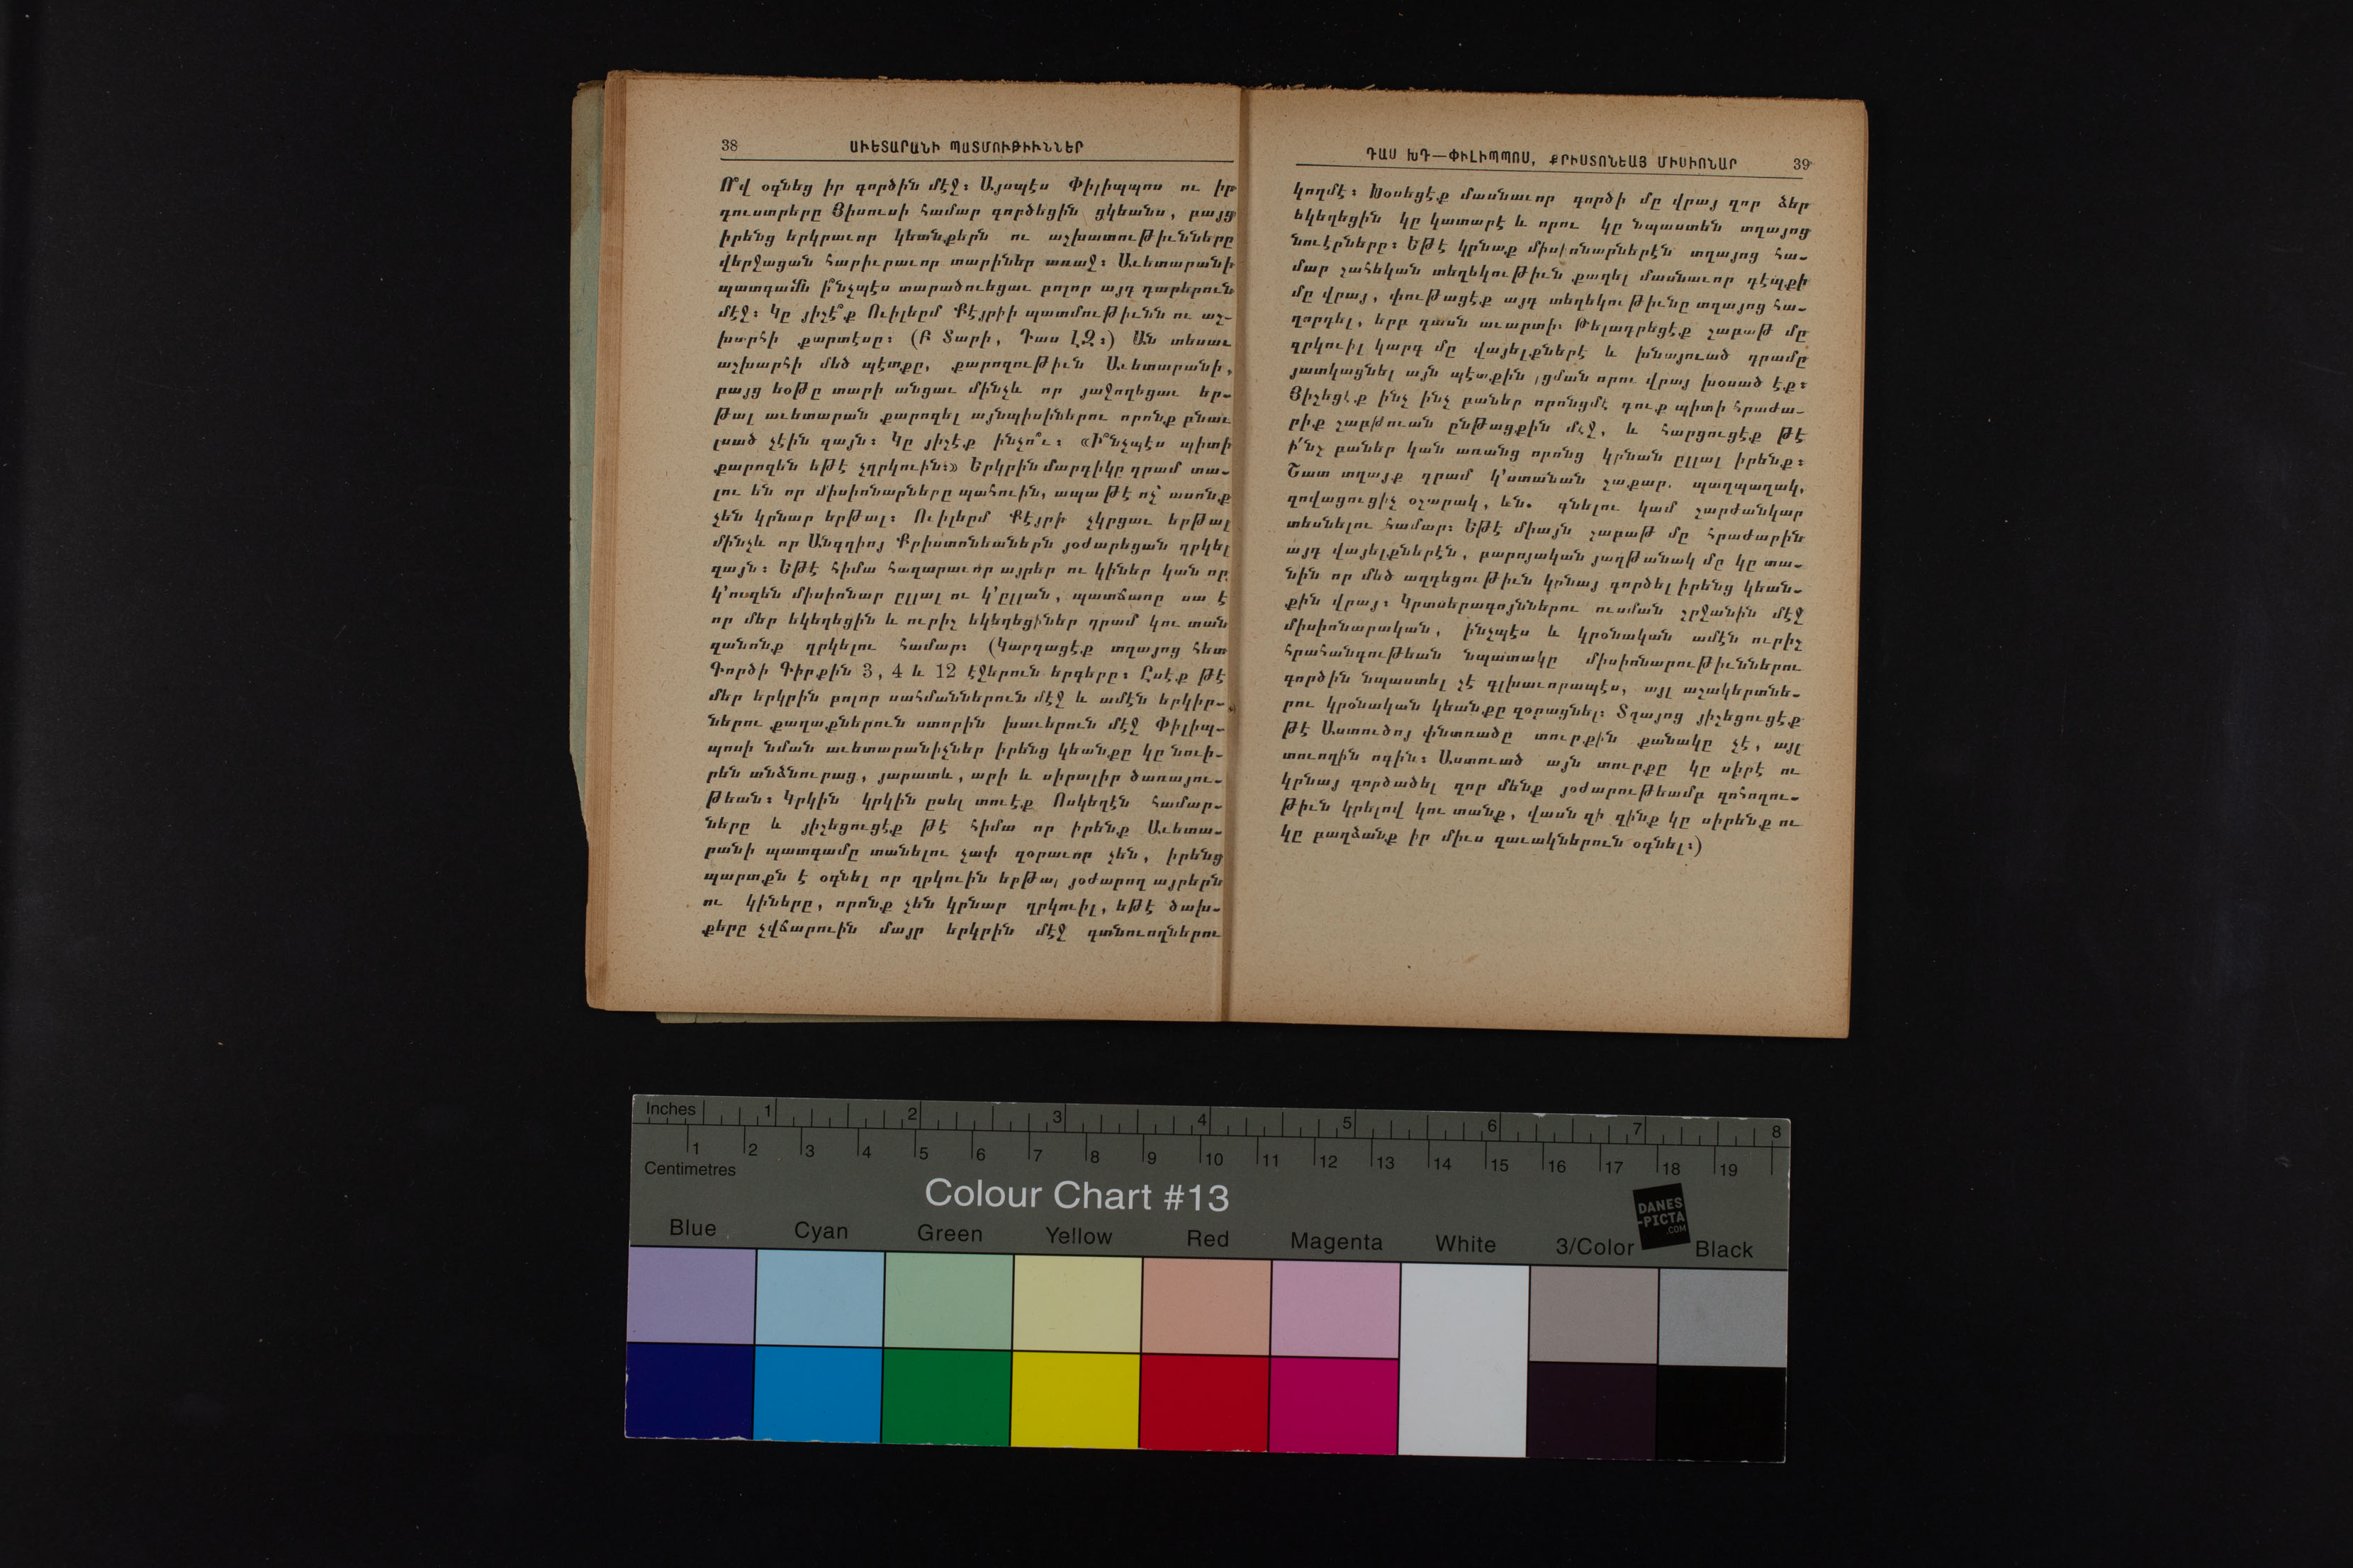 38 ԱՒԵՏԱՐԱՆԻ ՊԱՏՄՈՒԹԻՒՆՆԵՐ
Ո՞վ օգնեց իր գործին մէջ։ Այսպէս Փիլիպպոս ու իր
դուստրերը Յիսուսի համար գործեցին ցկեանս, բայց
իրենց երկրաւոր կեանքերն ու աշխատութիւնները
վերջացան հարիւրաւոր տարիներ առաջ։ Աւետարանի
պատգամն ի՞նչպէս տարածուեցաւ բոլոր այդ դարերուն
մէջ։ Կը յիշէ՞ք Ուիլերմ Քէյրիի պատմութիւնն ու աշ-
խարհի քարտէսը։ (Բ Տարի, Դաս ԼԶ։) Ան տեսաւ
աշխարհի մեծ պէտքը, քարոզութիւն Աւետարանի,
բայց եօթը տարի անցաւ մինչև որ յաջողեցաւ եր-
թալ աւետարան քարոզել այնպիսիներու որոնք բնաւ
լսած չէին զայն։ Կը յիշէք ինչո՞ւ։ «Ի՞նչպէս պիտի
քարոզեն եթէ չղրկուին։» Երկրին մարդիկը դրամ տա-
լու են որ միսիոնարները պահուին, ապա թէ ոչ՝ ասոնք
չեն կրնար երթալ։ Ուիլերմ Քէյրի չկրցաւ երթալ
մինչև որ Անգղիոյ Քրիստոնեաներն յօժարեցան ղրկել
զայն։ Եթէ հիմա հազարաւոր այրեր ու կիներ կան որ
կ՚ուզեն միսիոնար ըլլալ ու կ՚ըլլան, պատճառը սա է
որ մեր եկեղեցին և ուրիշ եկեղեցիներ դրամ կու տան
զանոնք ղրկելու համար։ (Կարդացէք տղայոց հետ
Գործի Գիրքին 3, 4 և 12 էջերուն երգերը։ Ըսէք թէ
մեր երկրին բոլոր սահմաններուն մէջ և ամէն երկիր-
ներու քաղաքներուն ստորին խաւերուն մէջ Փիլիպ-
պոսի նման աւետարանիչներ իրենց կեանքը կը նուի-
րեն անձնուրաց, յարատև, արի և սիրալիր ծառայու-
թեան։ Կրկին կրկին ըսել տուէք Ոսկեղէն համար-
ները և յիշեցուցէք թէ հիմա որ իրենք Աւետա-
րանի պատգամը տանելու չափ զօրաւոր չեն, իրենց
պարտքն է օգնել որ ղրկուին երթալ յօժարող այրերն
ու կիները, որոնք չեն կրնար ղրկուիլ, եթէ ծախ-
քերը չվճարուին մայր երկրին մէջ գտնուողներու
ԴԱՍ ԽԴ—ՓԻԼԻՊՊՈՍ, ՔՐԻՍՏՈՆԵԱՅ ՄԻՍԻՈՆԱՐ 39
կողմէ։ Խօսեցէք մասնաւոր գործի մը վրայ զոր ձեր
եկեղեցին կը կատարէ և որու կը նպաստեն տղայոց
նուէրները։ Եթէ կրնաք միսիոնարներէն տղայոց հա-
մար շահեկան տեղեկութիւն քաղել մասնաւոր դէպքի
մը վրայ, փութացէք այդ տեղեկութիւնը տղայոց հա-
ղորդել, երբ դասն աւարտի։ Թելադրեցէք շաբաթ մը
զրկուիլ կարգ մը վայելքներէ և խնայուած դրամը
յատկացնել այն պէտքին լցման որու վրայ խօսած էք։
Յիշեցէք ինչ ինչ բաներ որոնցմէ դուք պիտի հրաժա-
րիք շաբթուան ընթացքին մէջ, և հարցուցէք թէ
ի՛նչ բաներ կան առանց որոնց կրնան ըլլալ իրենք։
Շատ տղայք դրամ կ՚ստանան շաքար, պաղպաղակ,
զովացուցիչ օշարակ, ևն. գնելու կամ շարժանկար
տեսնելու համար։ Եթէ միայն շաբաթ մը հրաժարին
այդ վայելքներէն, բարոյական յաղթանակ մը կը տա-
նին որ մեծ ազդեցութիւն կրնայ գործել իրենց կեան-
քին վրայ։ Կրտսերագոյններու ուսման շրջանին մէջ
միսիոնարական, ինչպէս և կրօնական ամէն ուրիշ
հրահանգութեան նպատակը միսիոնարութիւններու
գործին նպաստել չէ գլխաւորապէս, այլ աշակերտնե-
րու կրօնական կեանքը զօրացնել։ Տղայոց յիշեցուցէք
թէ Աստուծոյ փնտռածը տուրքին քանակը չէ, այլ
տուողին ոգին։ Աստուած այն տուրքը կը սիրէ ու
կրնայ գործածել զոր մենք յօժարութեամբ զոհողու-
թիւն կրելով կու տանք, վասն զի զինք կը սիրենք ու
կը բաղձանք իր միւս զաւակներուն օգնել։)
Inches 1 2 3 4 5 6 7 8
1 2 3 4 5 6 7 8 9 10 11 12 13 14 15 16 17 18 19
Centimetres
Colour Chart #13
DANES
-PICTA
.COM
Blue Cyan Green Yellow Red Magenta White 3/Color Black